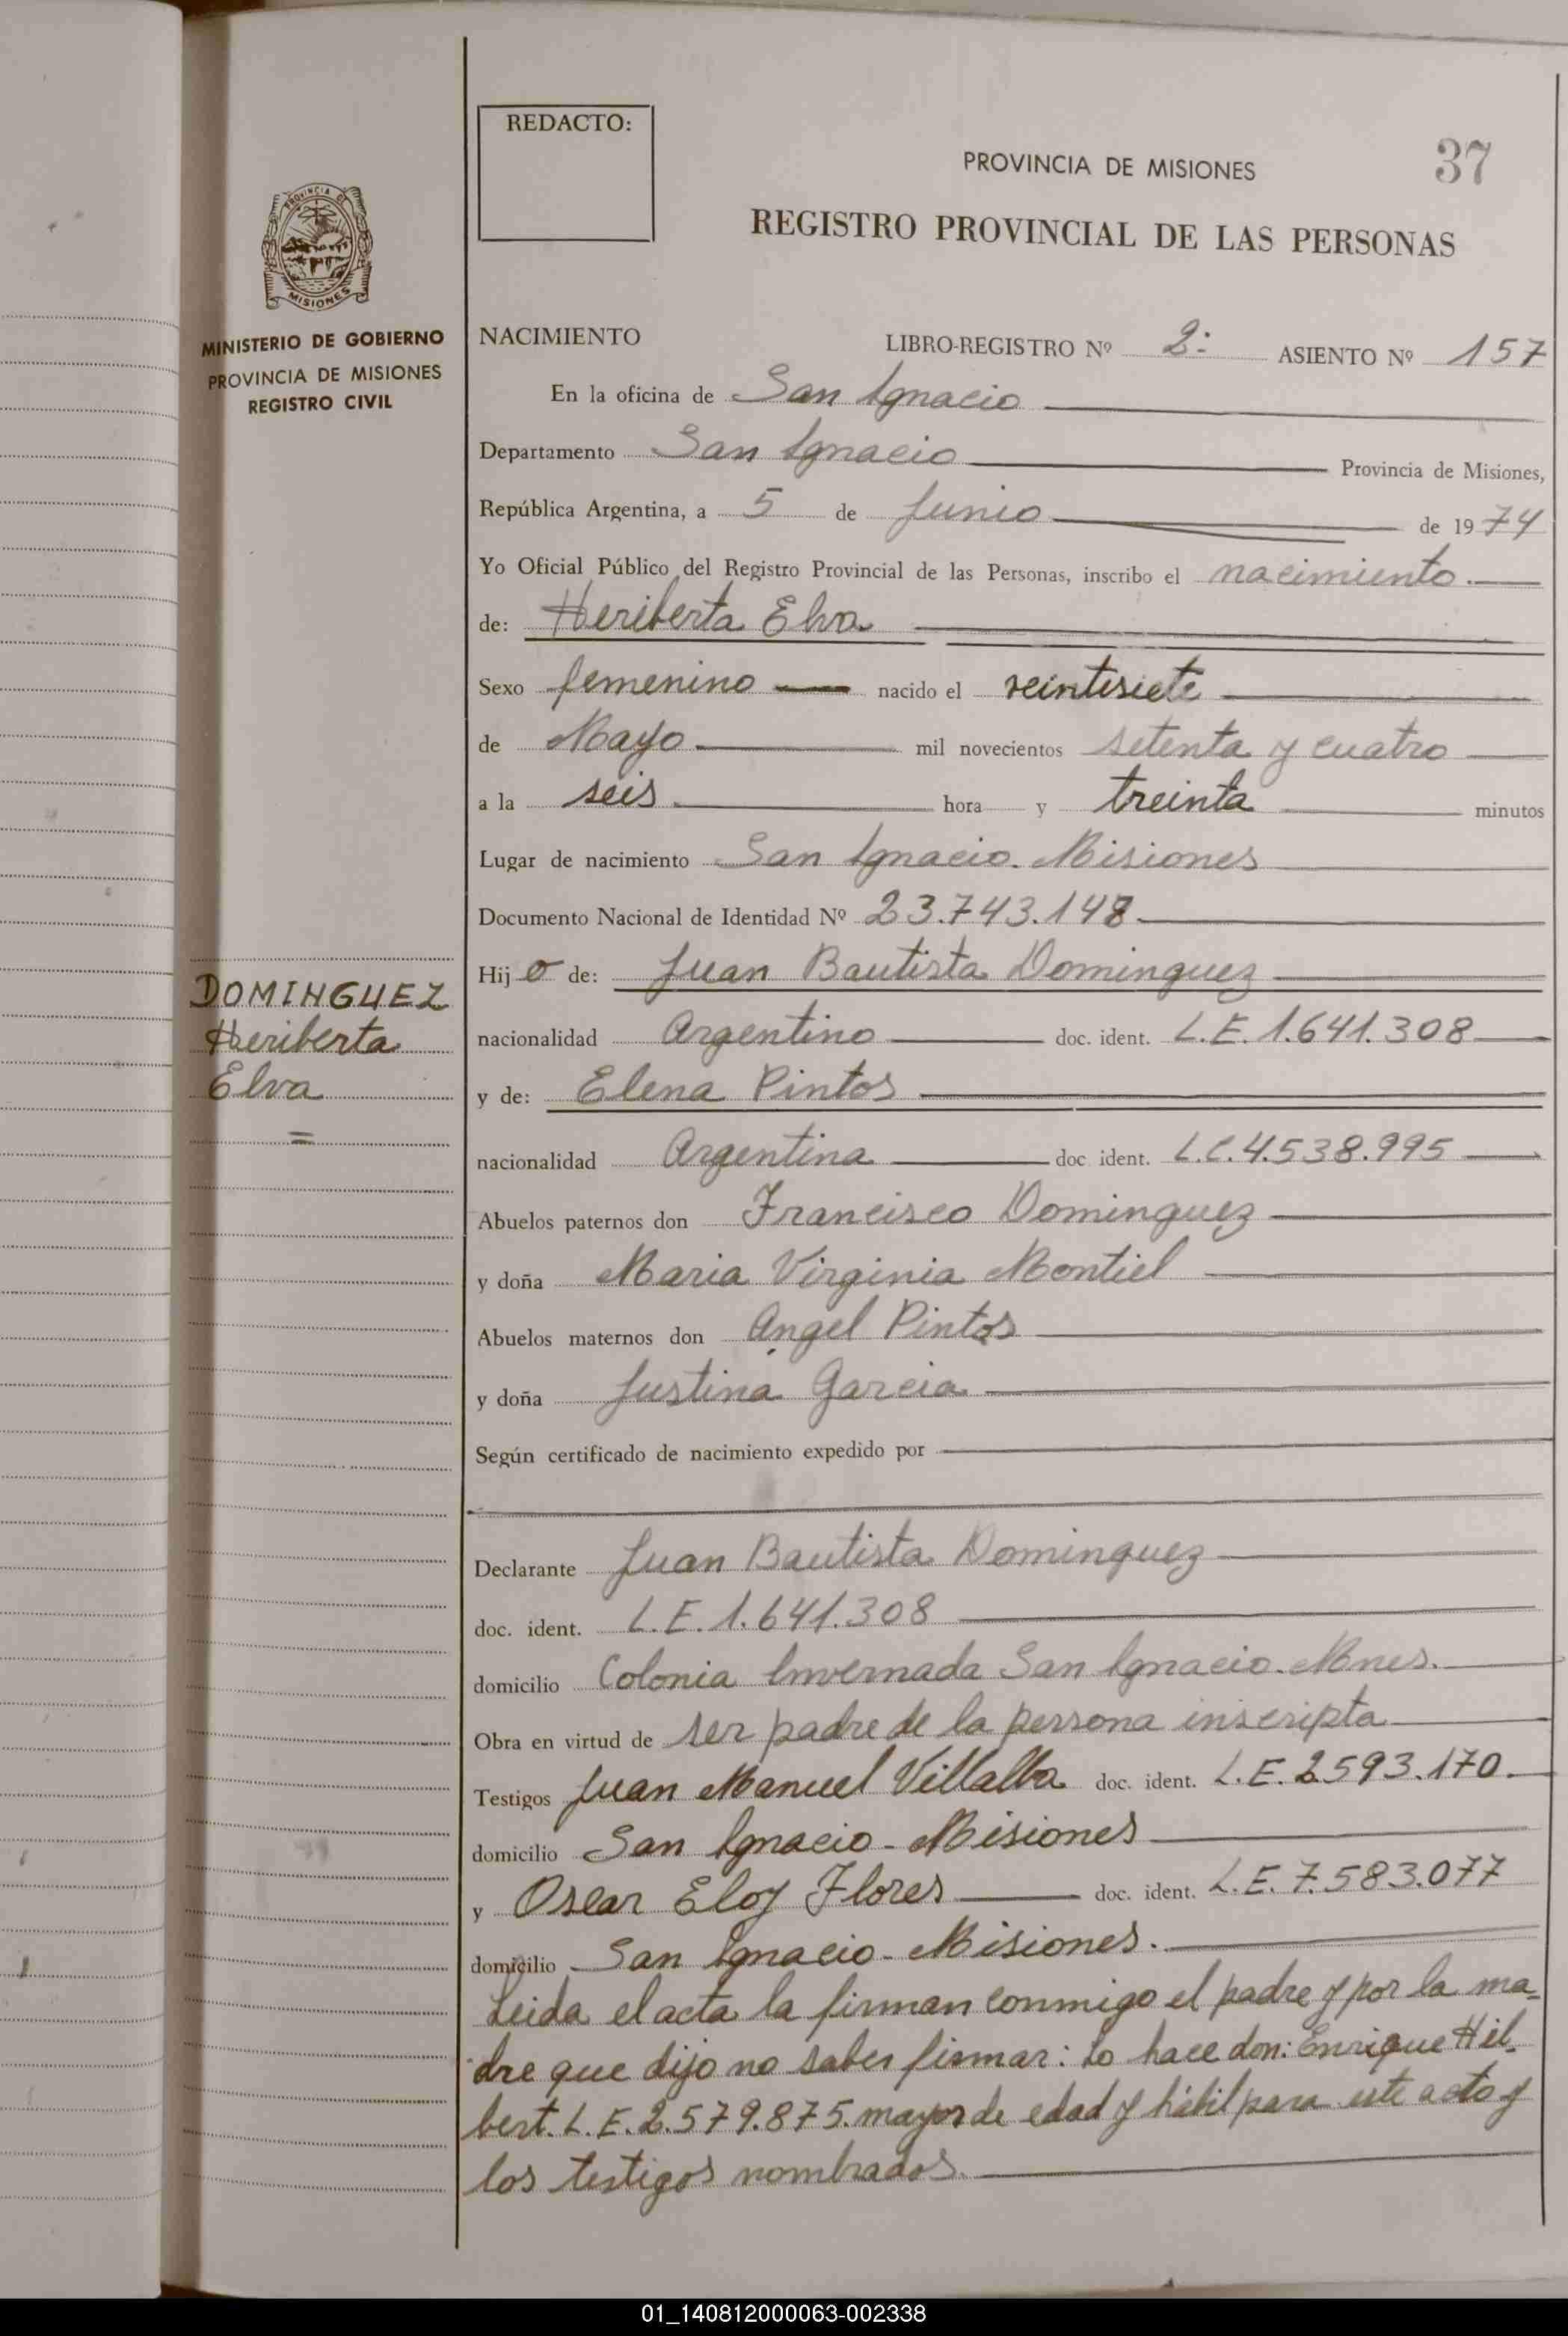 REDACTO:
PROVINCIA DE MISIONES
37
REGISTRO PROVINCIAL DE LAS PERSONAS
PROVINCIA DE
MISIONES
MINISTERIO DE GOBIERNO
PROVINCIA DE MISIONES
REGISTRO CIVIL
NACIMIENTO LIBRO-REGISTRO Nº 2: ASIENTO Nº 157
En la oficina de San Ignacio
Departamento San Ignacio Provincia de Misiones,
República Argentina, a 5 de Junio de 1974
Yo Oficial Público del Registro Provincial de las Personas, inscribo el nacimiento.
de: Heriberta Elva
Sexo femenino nacido el veintisiete
de Mayo mil novecientos setenta y cuatro
a la seis hora y treinta minutos
Lugar de nacimiento San Ignacio. Misiones
Documento Nacional de Identidad Nº 23.743.148
Hijo de: Juan Bautista Dominguez
DOMINGUEZ
Heriberta
Elva
=
nacionalidad Argentino doc. ident. L.E. 1.641.308
y de: Elena Pintos
nacionalidad Argentina doc ident. L.C. 4.538.995
Abuelos paternos don Francisco Dominguez
y doña Maria Virginia Montiel
Abuelos maternos don Angel Pintos
y doña Justina Garcia
Según certificado de nacimiento expedido por
Declarante Juan Bautista Dominguez
doc. ident. L.E. 1.641.308
domicilio Colonia Invernada San Ignacio. Mnes.
Obra en virtud de ser padre de la persona inscripta
Testigos Juan Manuel Villalba doc. ident. L.E. 2.593.170.
domicilio San Ignacio - Misiones
y Oscar Eloy Flores doc. ident. L.E. 7.583.077
domicilio San Ignacio - Misiones.
Leida el acta la firman conmigo el padre y por la ma=
dre que dijo no saber firmar: Lo hace don: Enrique Hil-
bert. L.E. 2.579.875. mayor de edad y hábil para este acto y
los testigos nombrados.
01_140812000063-002338